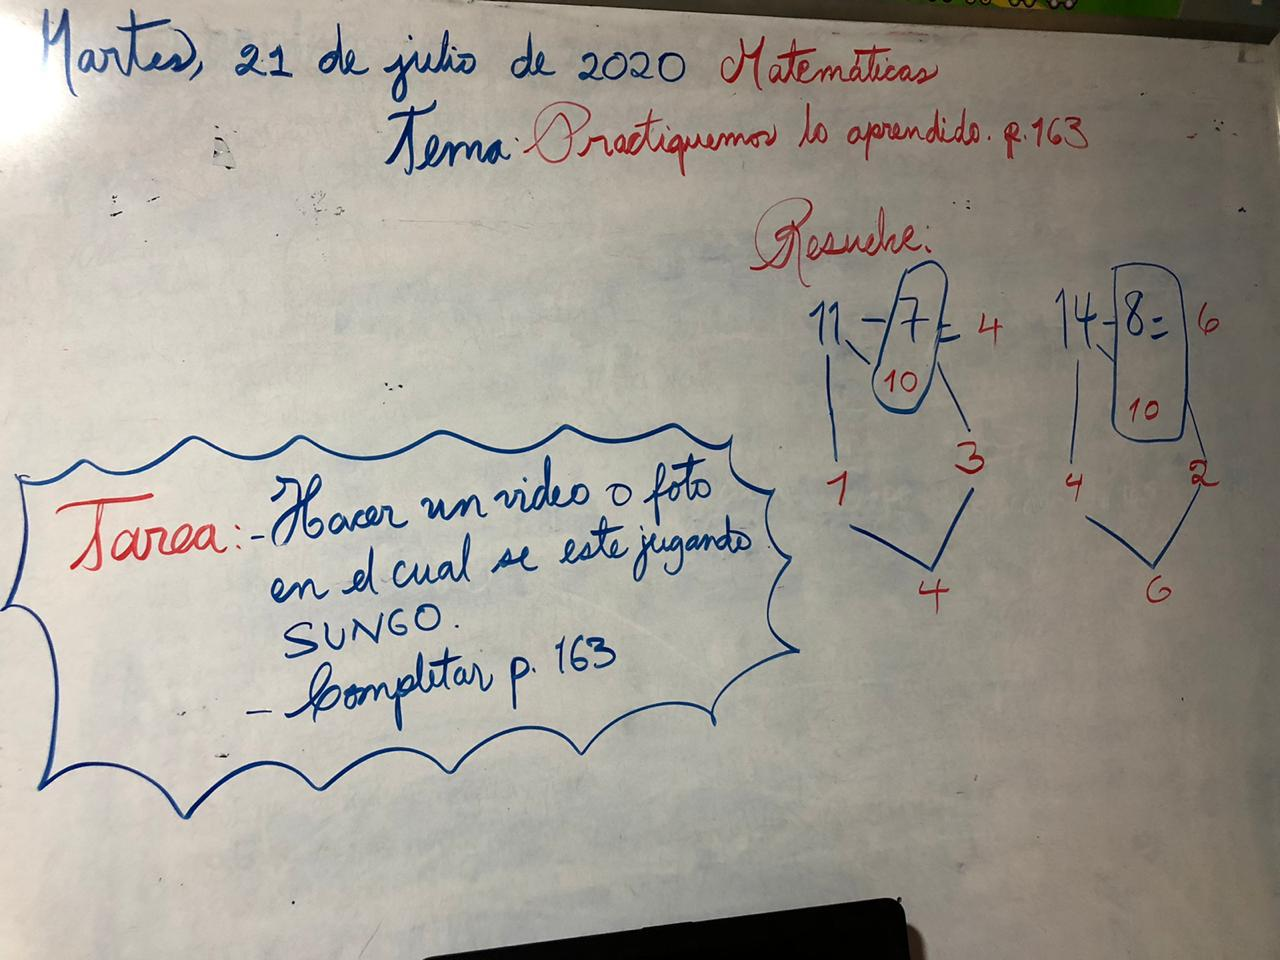 Martes, 21 de julio de 2020 Matemáticas
Tema: Practiquemos lo aprendido. p. 163
Resuelve:
11 - 7 = 4
10
1 3
4
14 - 8 = 6
10
4 2
6
Tarea: - Hacer un video o foto
en el cual se este jugando
SUNGO.
- Completar p. 163